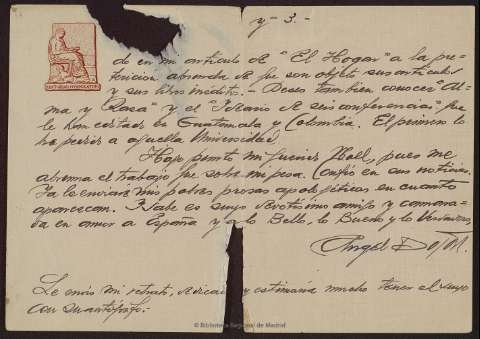 y - 3. -
do en mi artículo de "El Hogar" a la pre-
terición absurda de que son objeto sus artículos
y sus libros inéditos. - Deseo también conocer "Al-
ma y Raza" y el "Ideario de seis conferencias" que
le van a editar en Guatemala y Colombia. El primero lo
he pedido a aquella Universidad.
Hago punto mi querido Noel, pues me
abruma el trabajo que sobre mi pesa. Confío en sus noticias.
Ya le enviaré mis pobres prosas apologéticas en cuanto
aparezcan. Sabe es suyo devotísimo amigo y camara-
da en amor a España y a lo Bello, lo Bueno y lo Verdadero,
Angel
Le envío mi retrato, dedicado y estimaría mucho tener el suyo
con autógrafo.-
© Biblioteca Regional de Madrid